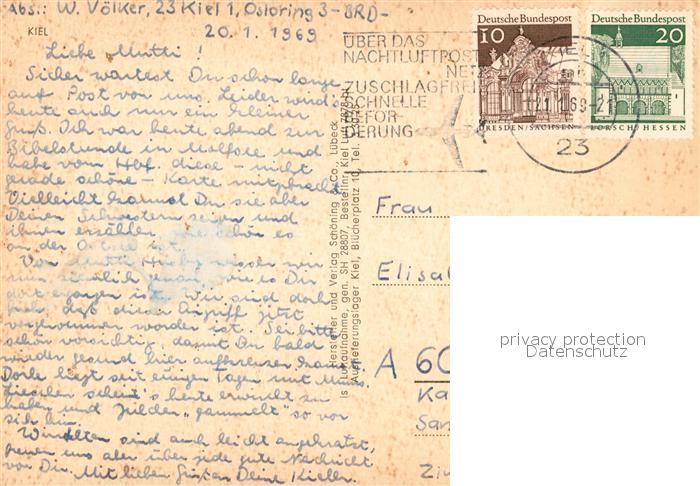 Abs.: W. Völker, 23 Kiel 1, Ostoring 3 - BRD-
KIEL
20.1.1969
Liebe Mutti!
Sicher wartest Du schon lange
auf Post von uns. Leider wird's
heute auch nur ein kleiner
Gruß. Ich war heute abend zur
Bibelstunde in Molfsee und
habe vom Hbf. diese - nicht
gerade schöne - Karte mitgebracht.
Vielleicht kannst Du sie aber
Deinen Schwestern zeigen und
ihnen erzählen, wie schön es
an der Ostsee ist.
Von Mutti wissen wir
nun ziemlich genau, wie es Dir
ist. Wir sind doch
froh, daß dieser Angriff jetzt
worden ist. Sei bitte
schön vorsichtig, damit Du bald
wieder gesund hier aufkreuzen kannst.
Dorle liegt seit einigen Tagen mit
scheint's heute erwischt zu
haben und "gammelt" so vor
sich hin.
Wir sind auch leicht angekratzt,
freuen uns aber über jede gute Nachricht
von Dir. Mit lieben Grüßen Deine Kieler.
ÜBER DAS
NACHTLUFTPOST
NETZ
ZUSCHLAGFREI
SCHNELLE
BEFÖR-
DERUNG
Deutsche Bundespost
10
DRESDEN/SACHSEN
Deutsche Bundespost
20
LORSCH/HESSEN
KIEL
21.1.69-21
23
Hersteller und Verlag Schöning & Co., Lübeck
Luftaufnahme, gen. SH 28807, Bestellnr. Kiel Luft
Auslieferungslager Kiel, Blücherplatz 10, Tel.
Frau
Elisa
A 60
Ka
San
Zi
privacy protection
Datenschutz